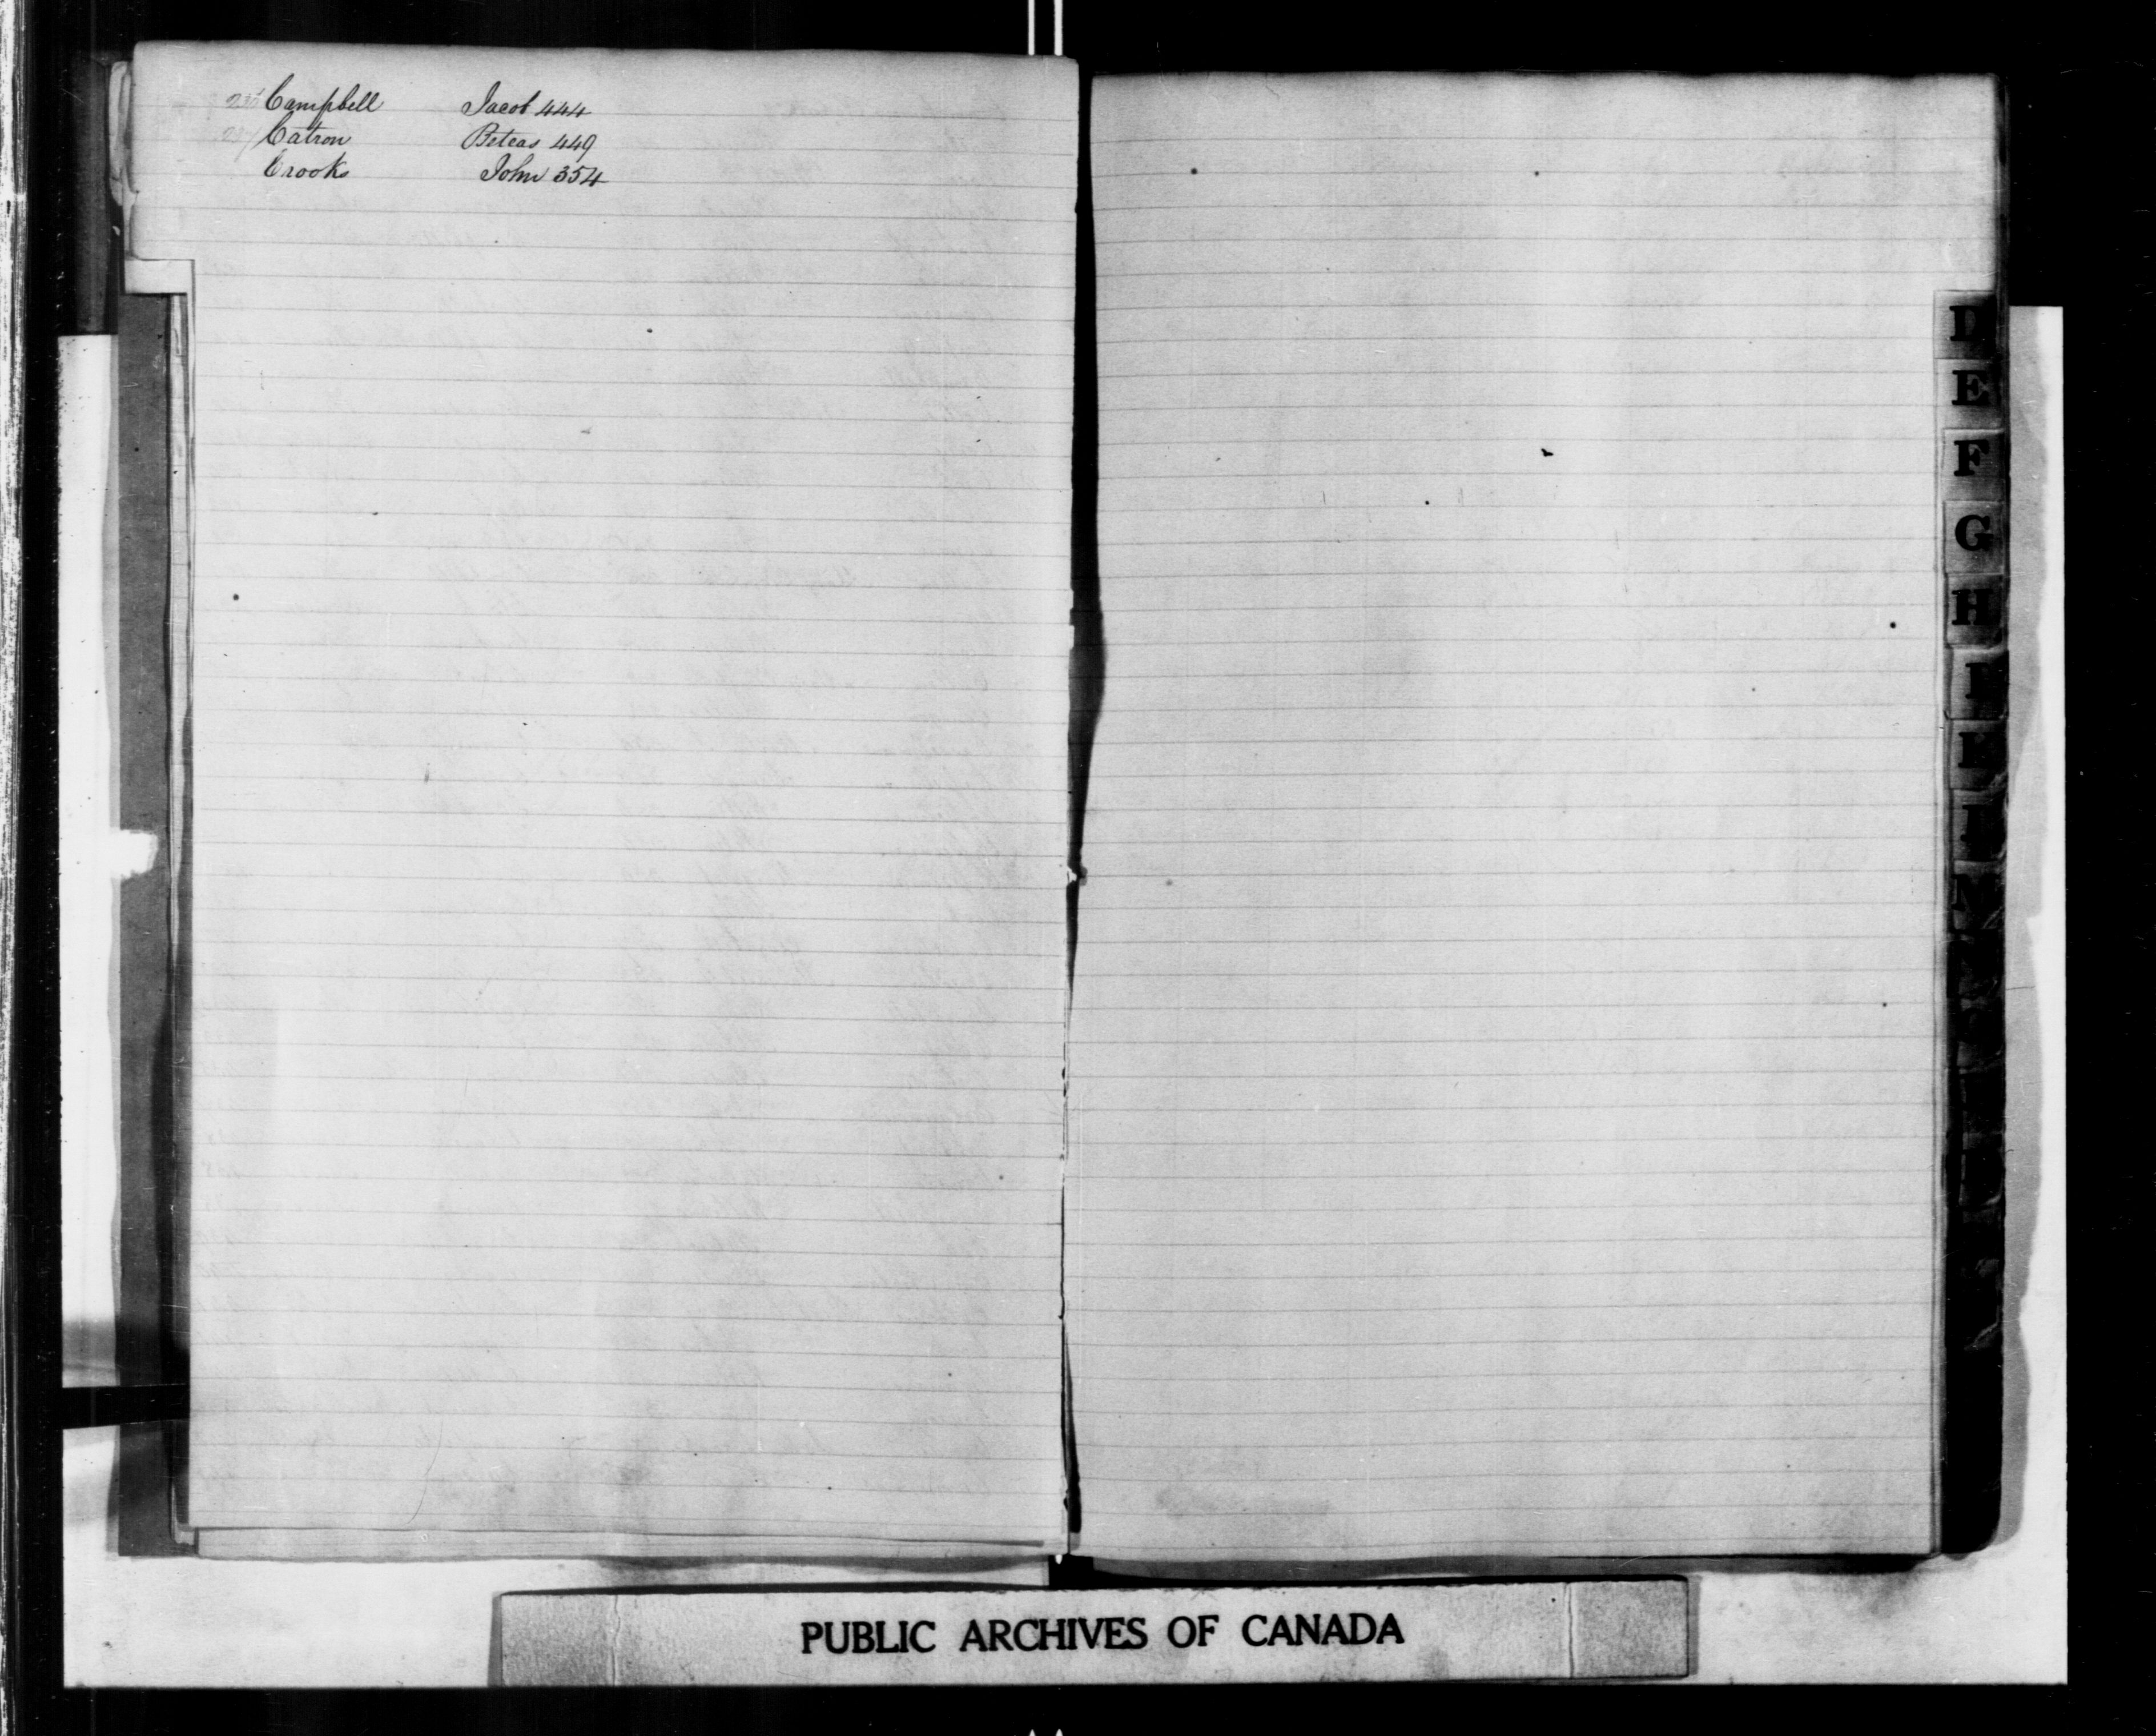 Campbell Jacob 444
Catron Peteas 449
Crooks John 354
D
E
F
G
H
I
M
PUBLIC ARCHIVES OF CANADA